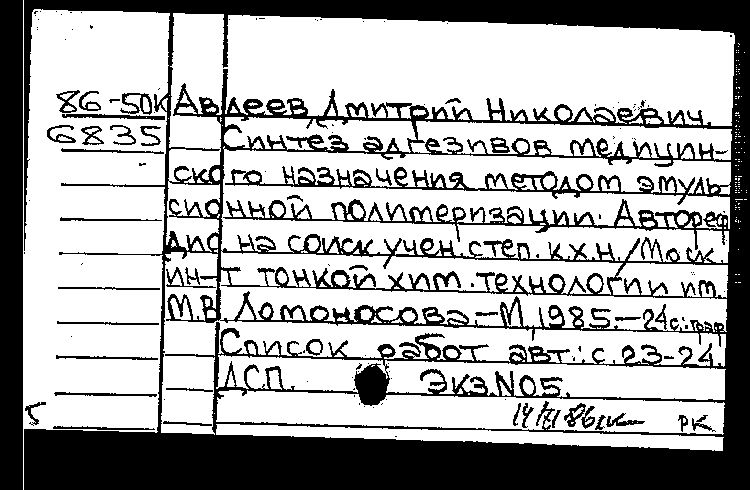 86-50К Авдеев, Дмитрий Николаевич.
6835 Синтез адгезивов медицин-
ского назначения методом эмуль-
сионной полимеризации. Автореф
дис. на соиск. учен. степ. к.х.н. / Моск.
ин-т тонкой хим. технологии им.
М.В. Ломоносова. - М., 1985. - 24 с.: граф
Список работ авт.: с. 23-24.
ДСП. Экз. №05.
РК
5